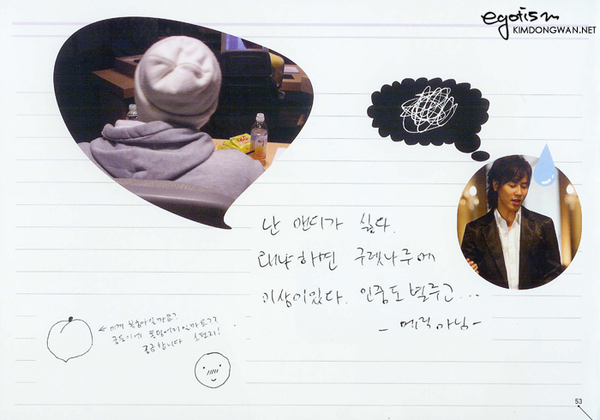 egotism
KIMDONGWAN.NET
난 앤디가 싫다.
왜냐하면 구렛나루에
이상이있다. 인중도 별루고...
- 에릭아님 -
← 이게 복숭아일까요?
궁금합니다
53